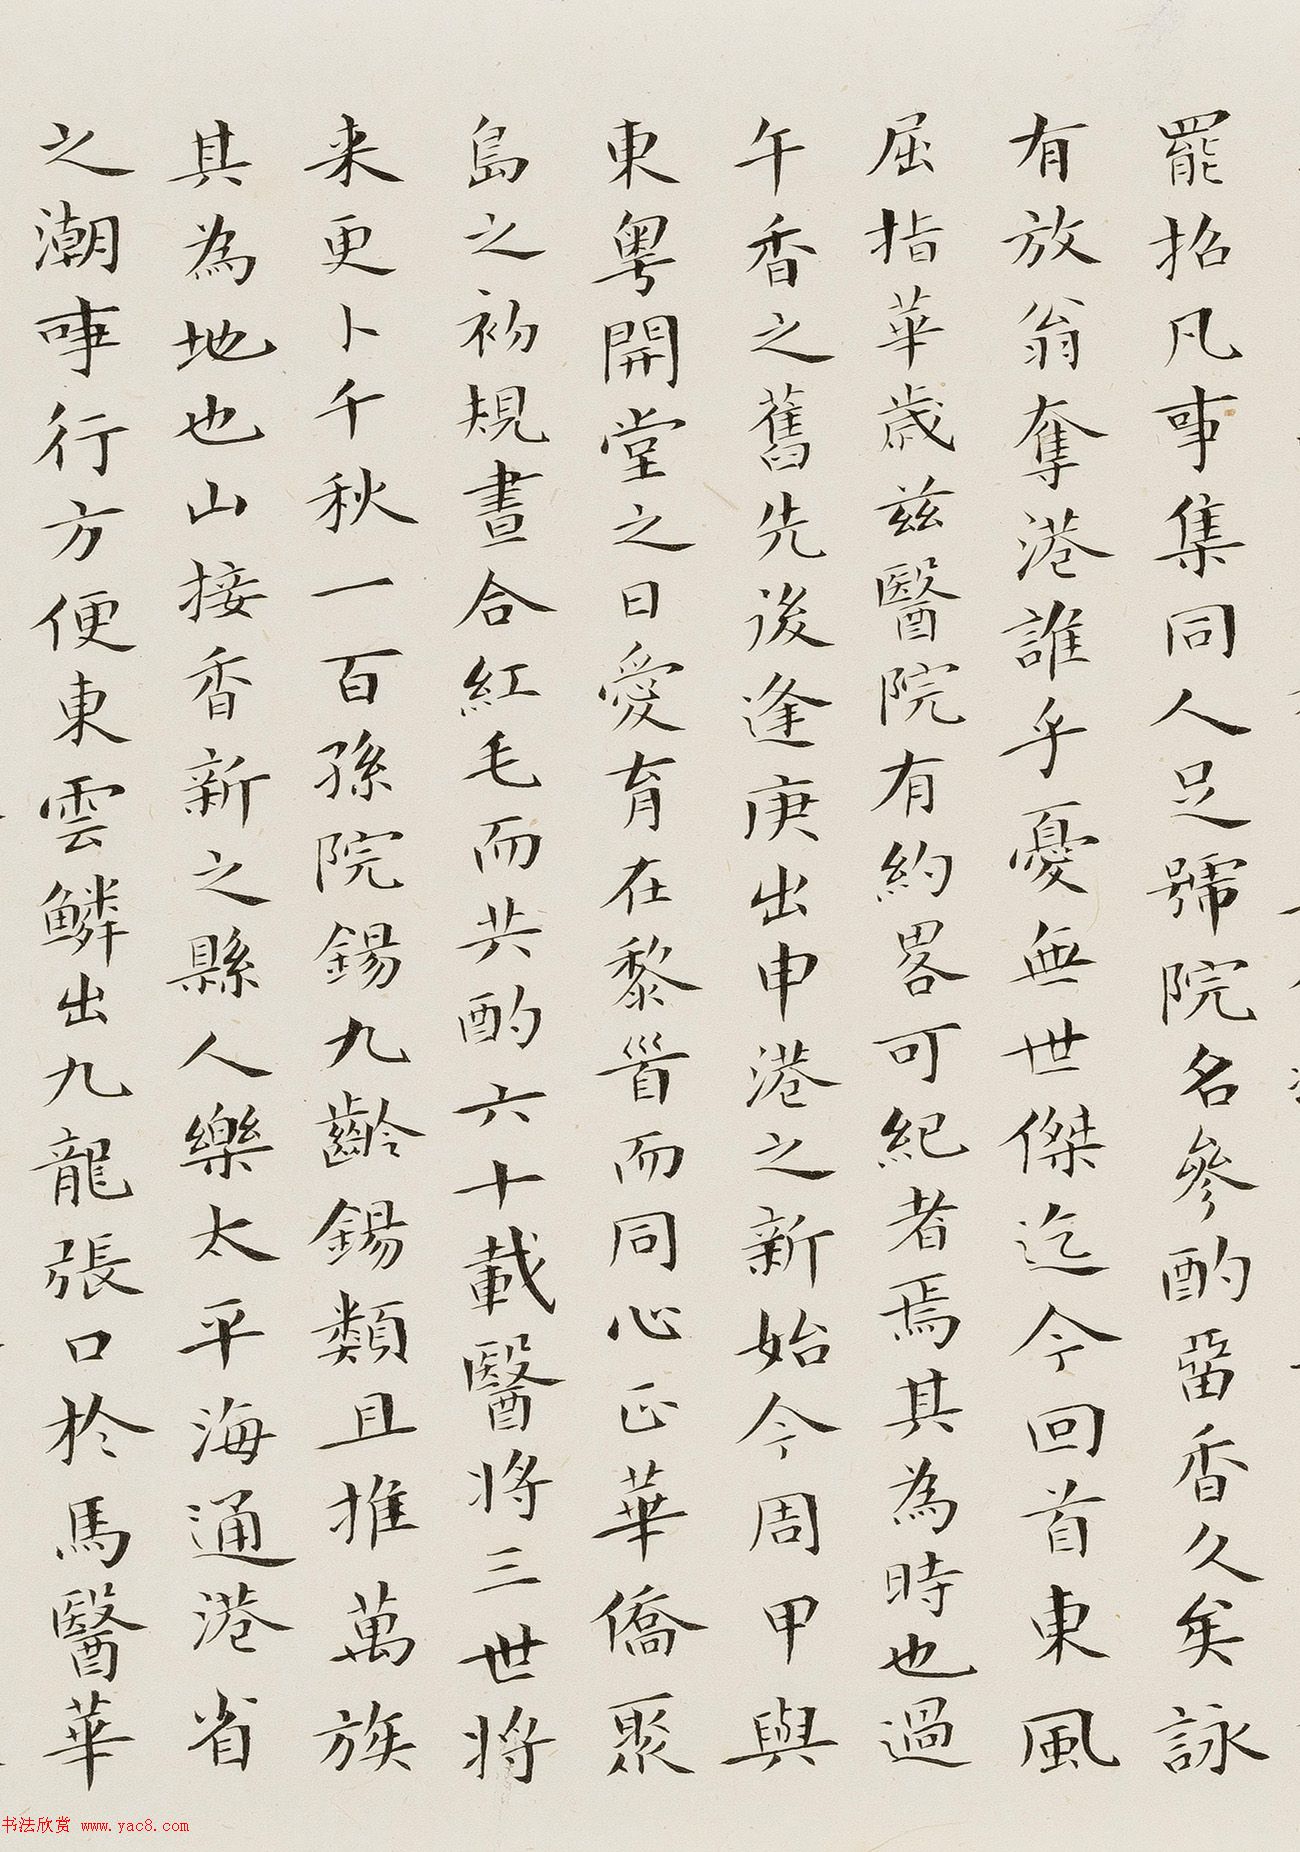 罷招凡事集同人足號院名參酌留香久矣詠
有放翁奪港誰乎憂無世傑迄今回首東風
屈指華歲茲醫院有約畧可紀者焉其為時也過
午香之舊先後逢庚出申港之新始今周甲與
東粵開堂之日愛育在黎首而同心正華僑聚
島之初規畫合紅毛而共酌六十載醫將三世將
来更卜千秋一百孫院錫九齡錫類且推萬族
其為地也山接香新之縣人樂太平海通港省
之潮事行方便東雲鱗出九龍張口於馬醫華
书法欣赏 www.yac8.com